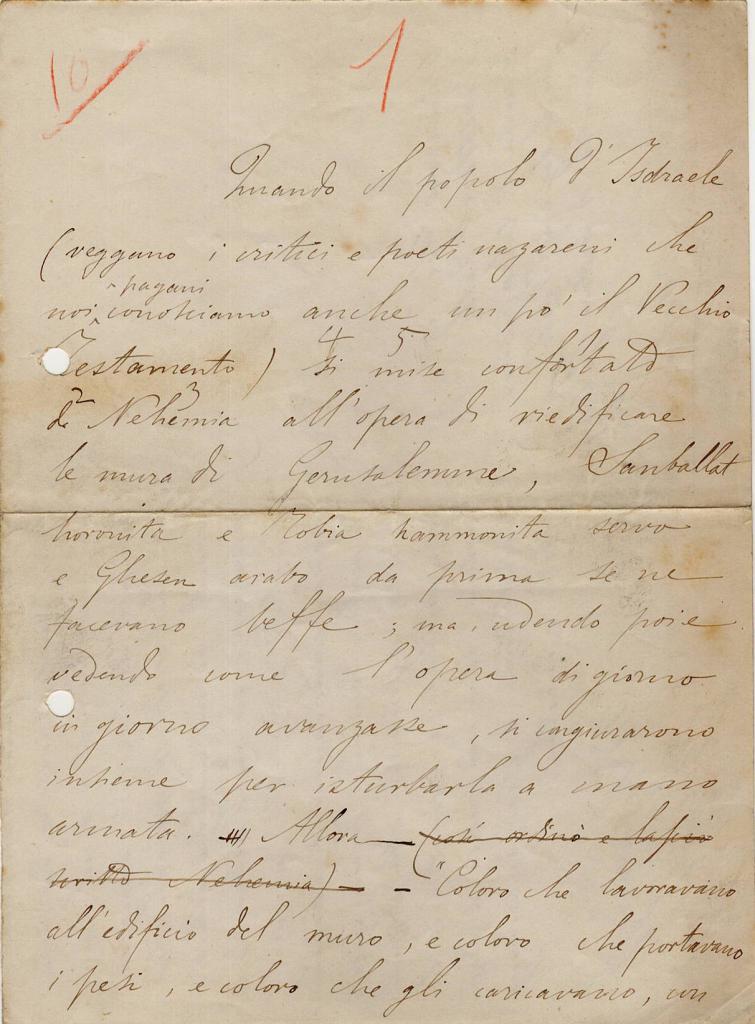 10
1
Quando il popolo d'Isdraele
(veggano i critici e poeti nazareni che
pagani
noi conosciamo anche un po' il Vecchio
4 5 1
Testamento) si mise confortato
2 3
da Nehemia all'opera di riedificare
le mura di Gerusalemme, Sanballat
horonita e Tobia hammonita servo
e Ghesen arabo da prima se ne
facevano beffe; ma, udendo poi e
vedendo come l'opera di giorno
in giorno avanzasse, si congiurarono
insieme per isturbarla a mano
armata. Allora — (così ordinò e lasciò
scritto Nehemia) — - "Coloro che lavoravano
all'edificio del muro, e coloro che portavano
i pesi, e coloro che gli caricavano, con